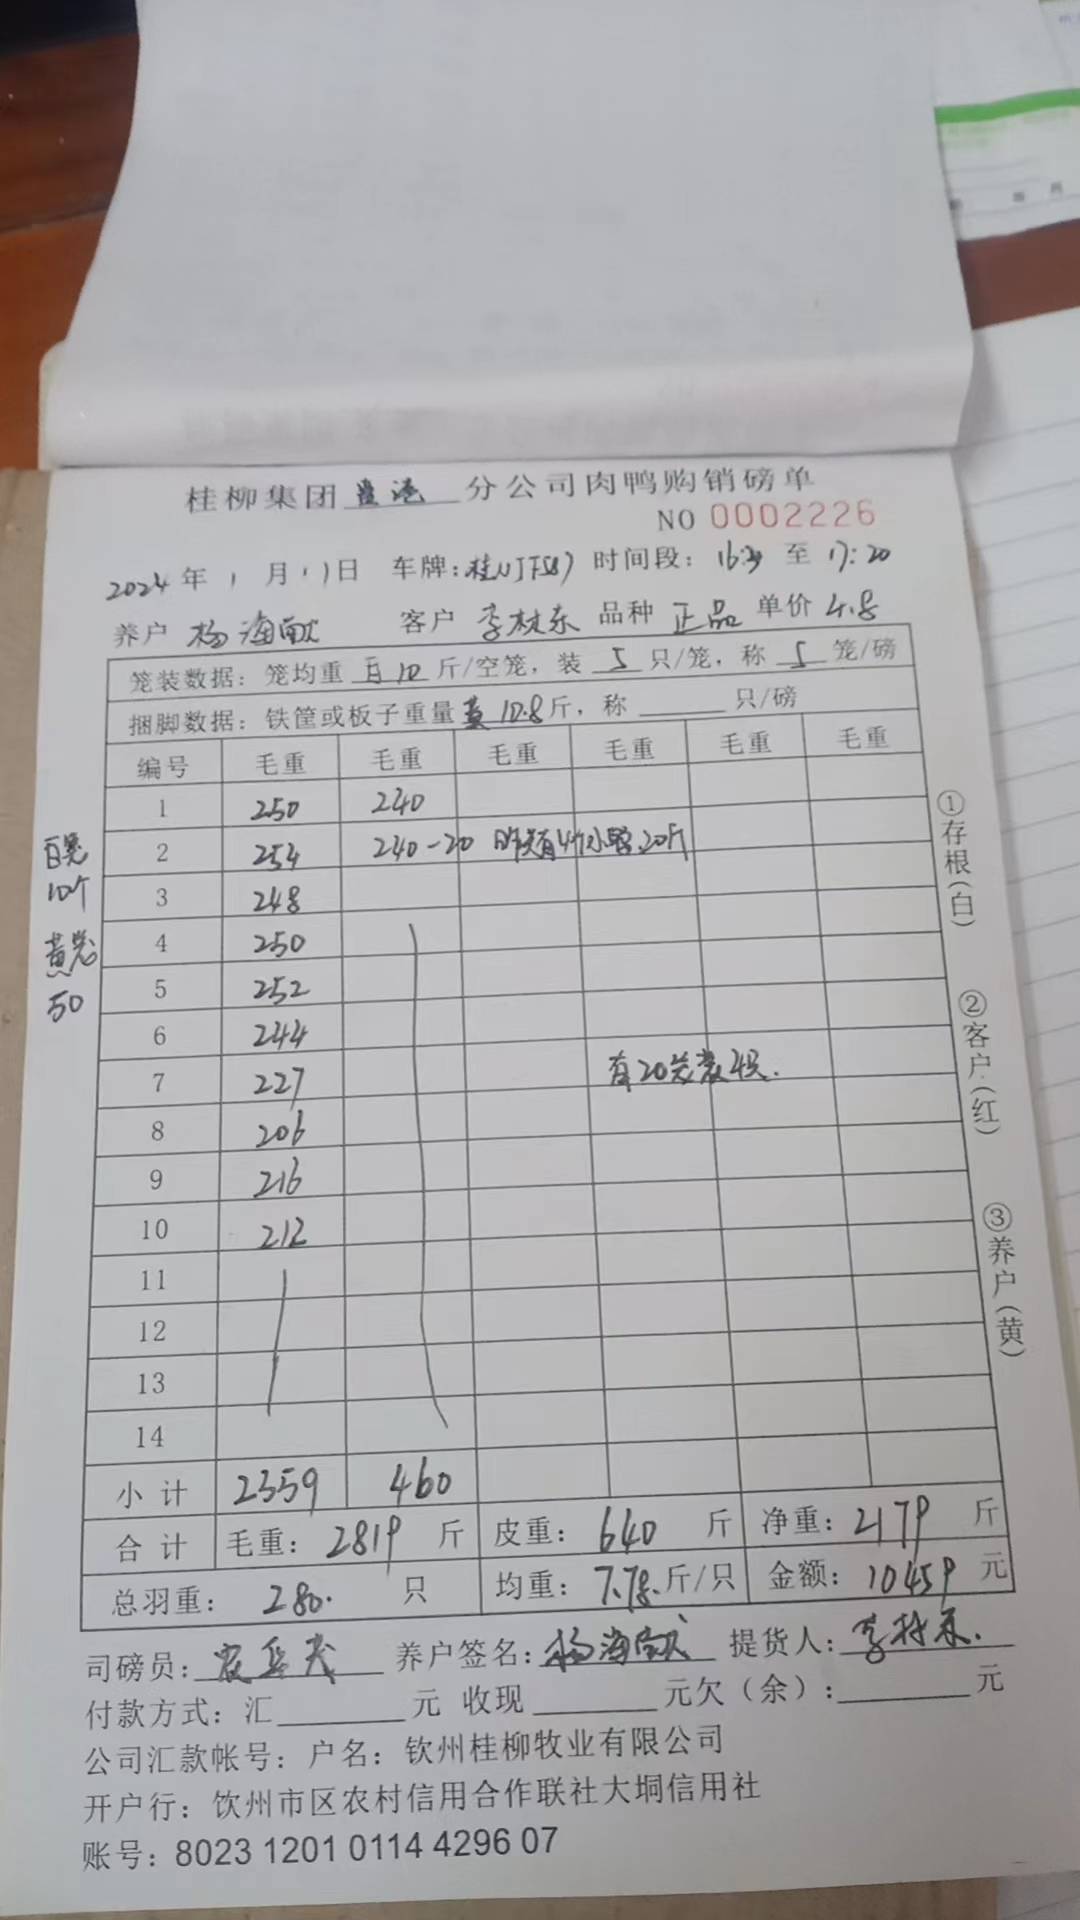 桂柳集团 分公司肉鸭购销磅单
NO 0002226
2024年1月11日 车牌: 时间段: 至 17:20
养户 杨海 客户 李林东 品种 正品 单价 4.8
笼装数据: 笼均重 白10 斤/空笼, 装 5 只/笼, 称 5 笼/磅
捆脚数据: 铁筐或板子重量 黄10.8斤, 称 只/磅
编号 毛重 毛重 毛重 毛重 毛重 毛重
1 250 240
2 254 240-20 昨天有4个小鸭20斤
3 248
4 250
5 252
6 244
7 227 有20笼装4只.
8 206
9 216
10 212
11
12
13
14
小计 2359 460
合计 毛重: 2819 斤 皮重: 640 斤 净重: 2179 斤
总羽重: 280. 只 均重: 7.78.斤/只 金额: 10459 元
司磅员: 养户签名: 杨海 提货人: 李林东.
付款方式: 汇 元 收现 元欠(余): 元
公司汇款帐号: 户名: 钦州桂柳牧业有限公司
开户行: 饮州市区农村信用合作联社大垌信用社
账号: 8023 1201 0114 4296 07
白笼
10个
黄笼
50
①存根(白)
②客户(红)
③养户(黄)